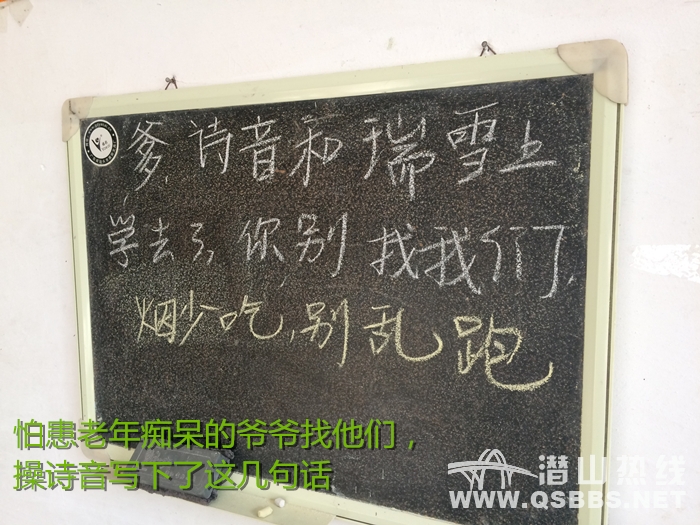 爹,诗音和瑞雪上
学去了,你别找我们了,
烟少吃,别乱跑
怕患老年痴呆的爷爷找他们，
操诗音写下了这几句话
潜山热线
WWW.QSBBS.NET